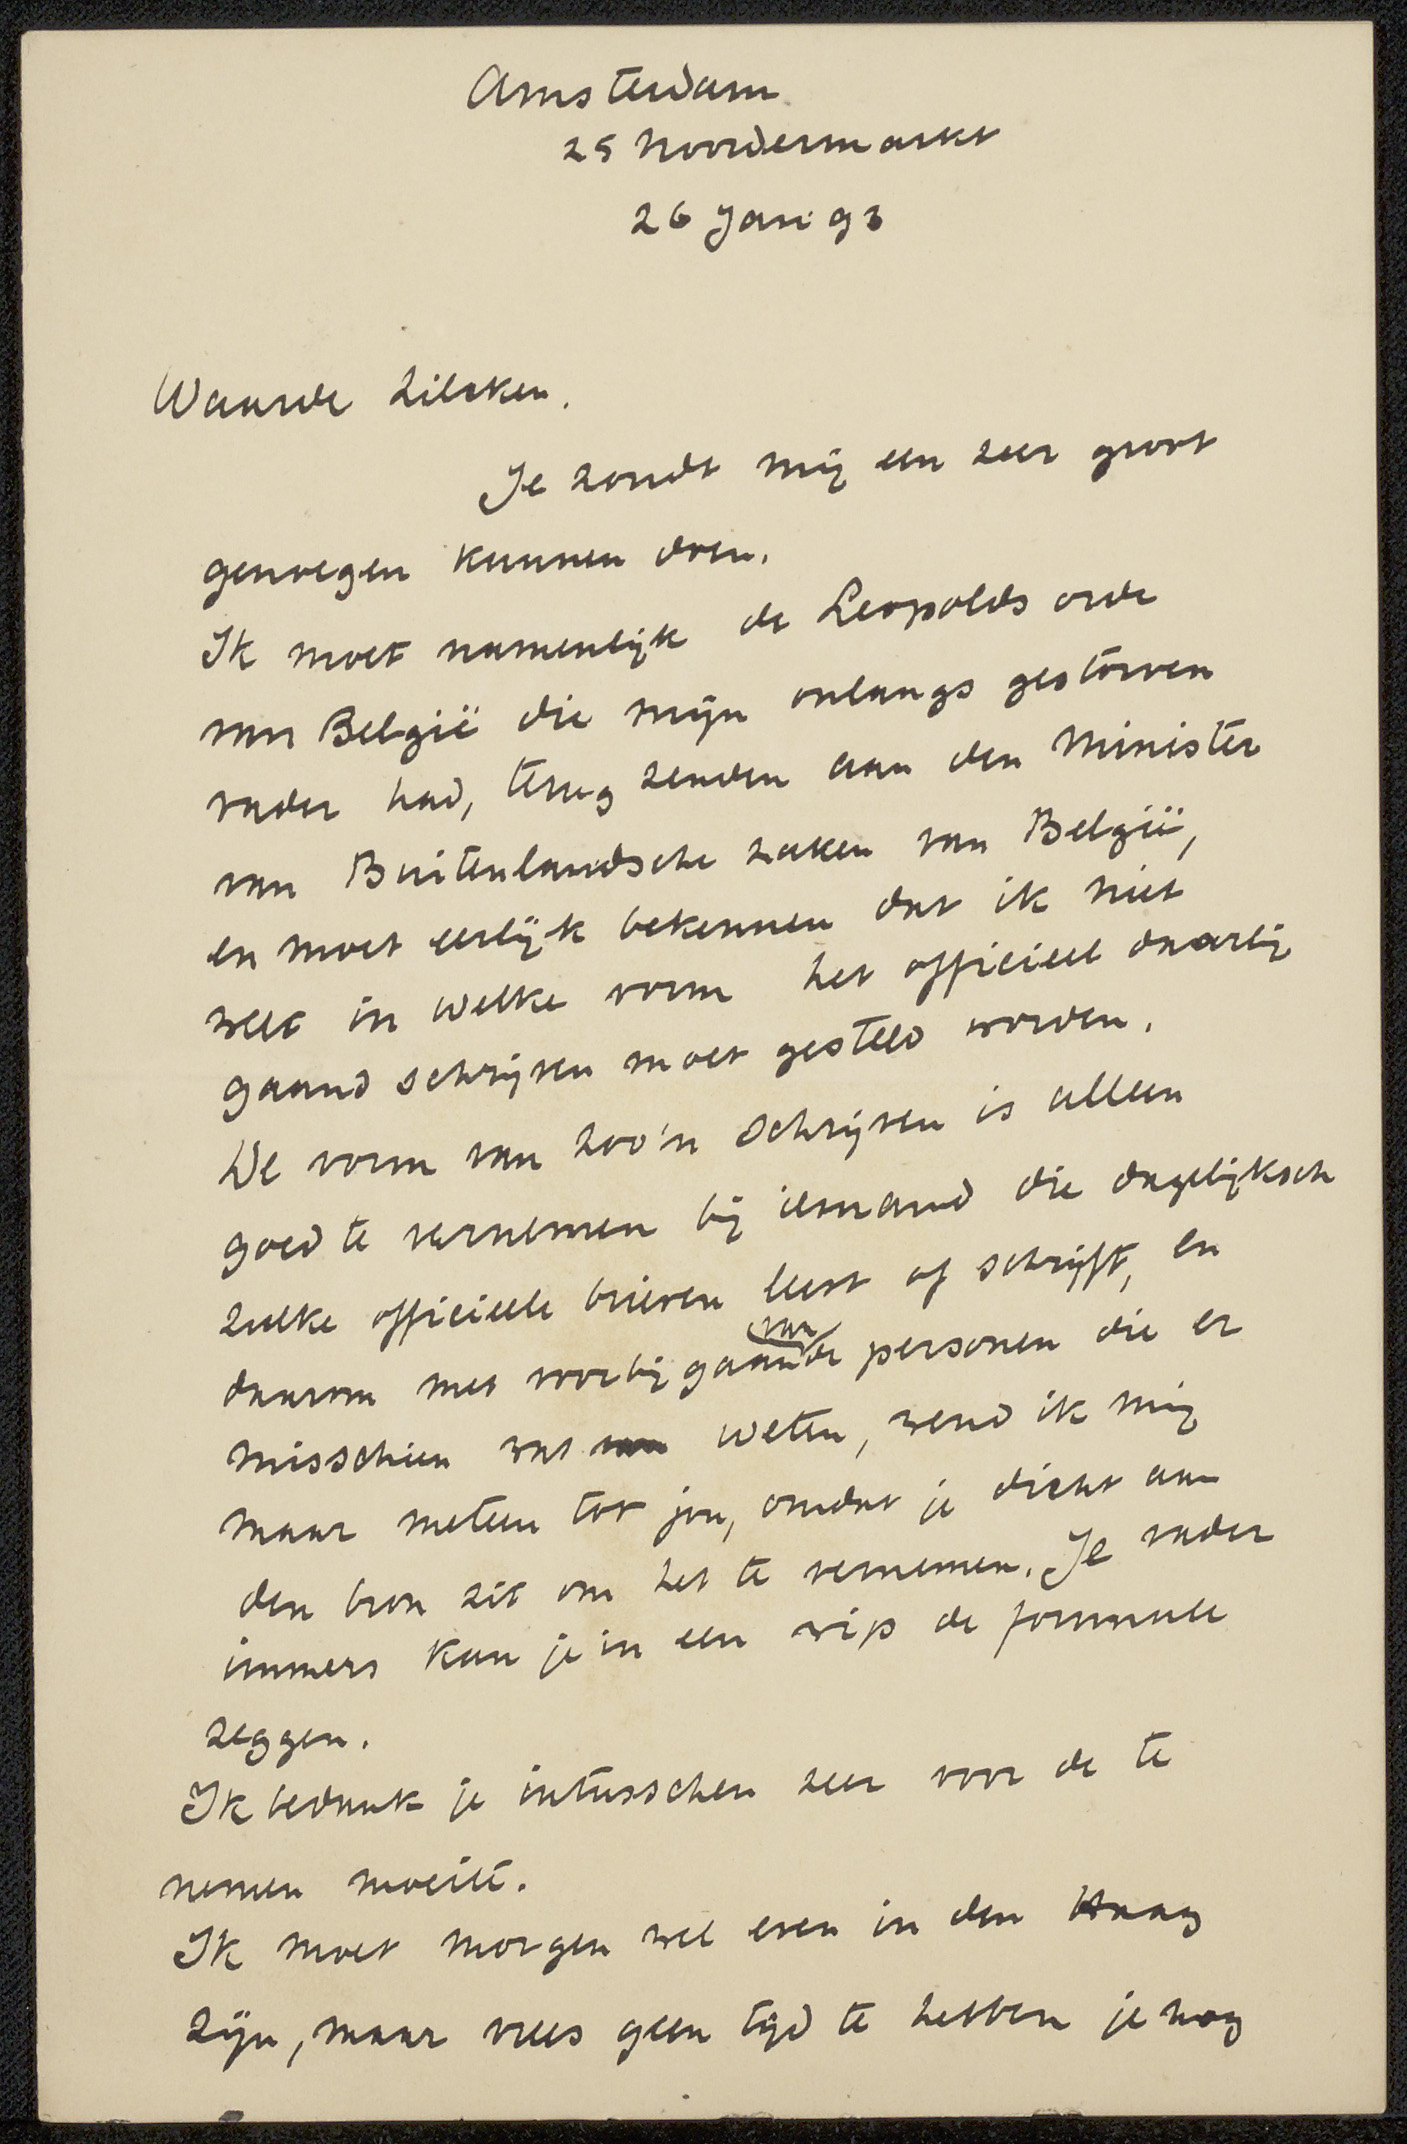 Amsterdam
25 Noordermarkt
26 Jan: 93
Waarde Zilcken.
Je zondt mij een zeer groot
genoegen kunnen doen.
Ik moet namenlijk de Leopolds orde
van België die mijn onlangs gestorven
vader had, terug zenden aan den Minister
van Buitenlandsche zaken van België,
en moet eerlijk bekennen dat ik niet
weet in welke vorm het officieel daarbij
gaand schrijven moet gesteld worden.
De vorm van zoo'n schrijven is alleen
goed te vernemen bij iemand die dagelijksch
zulke officieele brieven leest of schrijft, en
daarom met voorbijgaande van personen die er
misschien wat van weten, wend ik mij
maar meteen tot jou, omdat je dicht aan
den bron zit om het te vernemen. Je vader
immers kan je in een wip de formule
zeggen.
Ik bedank je intusschen zeer voor de te
nemen moeite.
Ik moet morgen wel even in den Haag
zijn, maar vrees geen tijd te hebben je nog